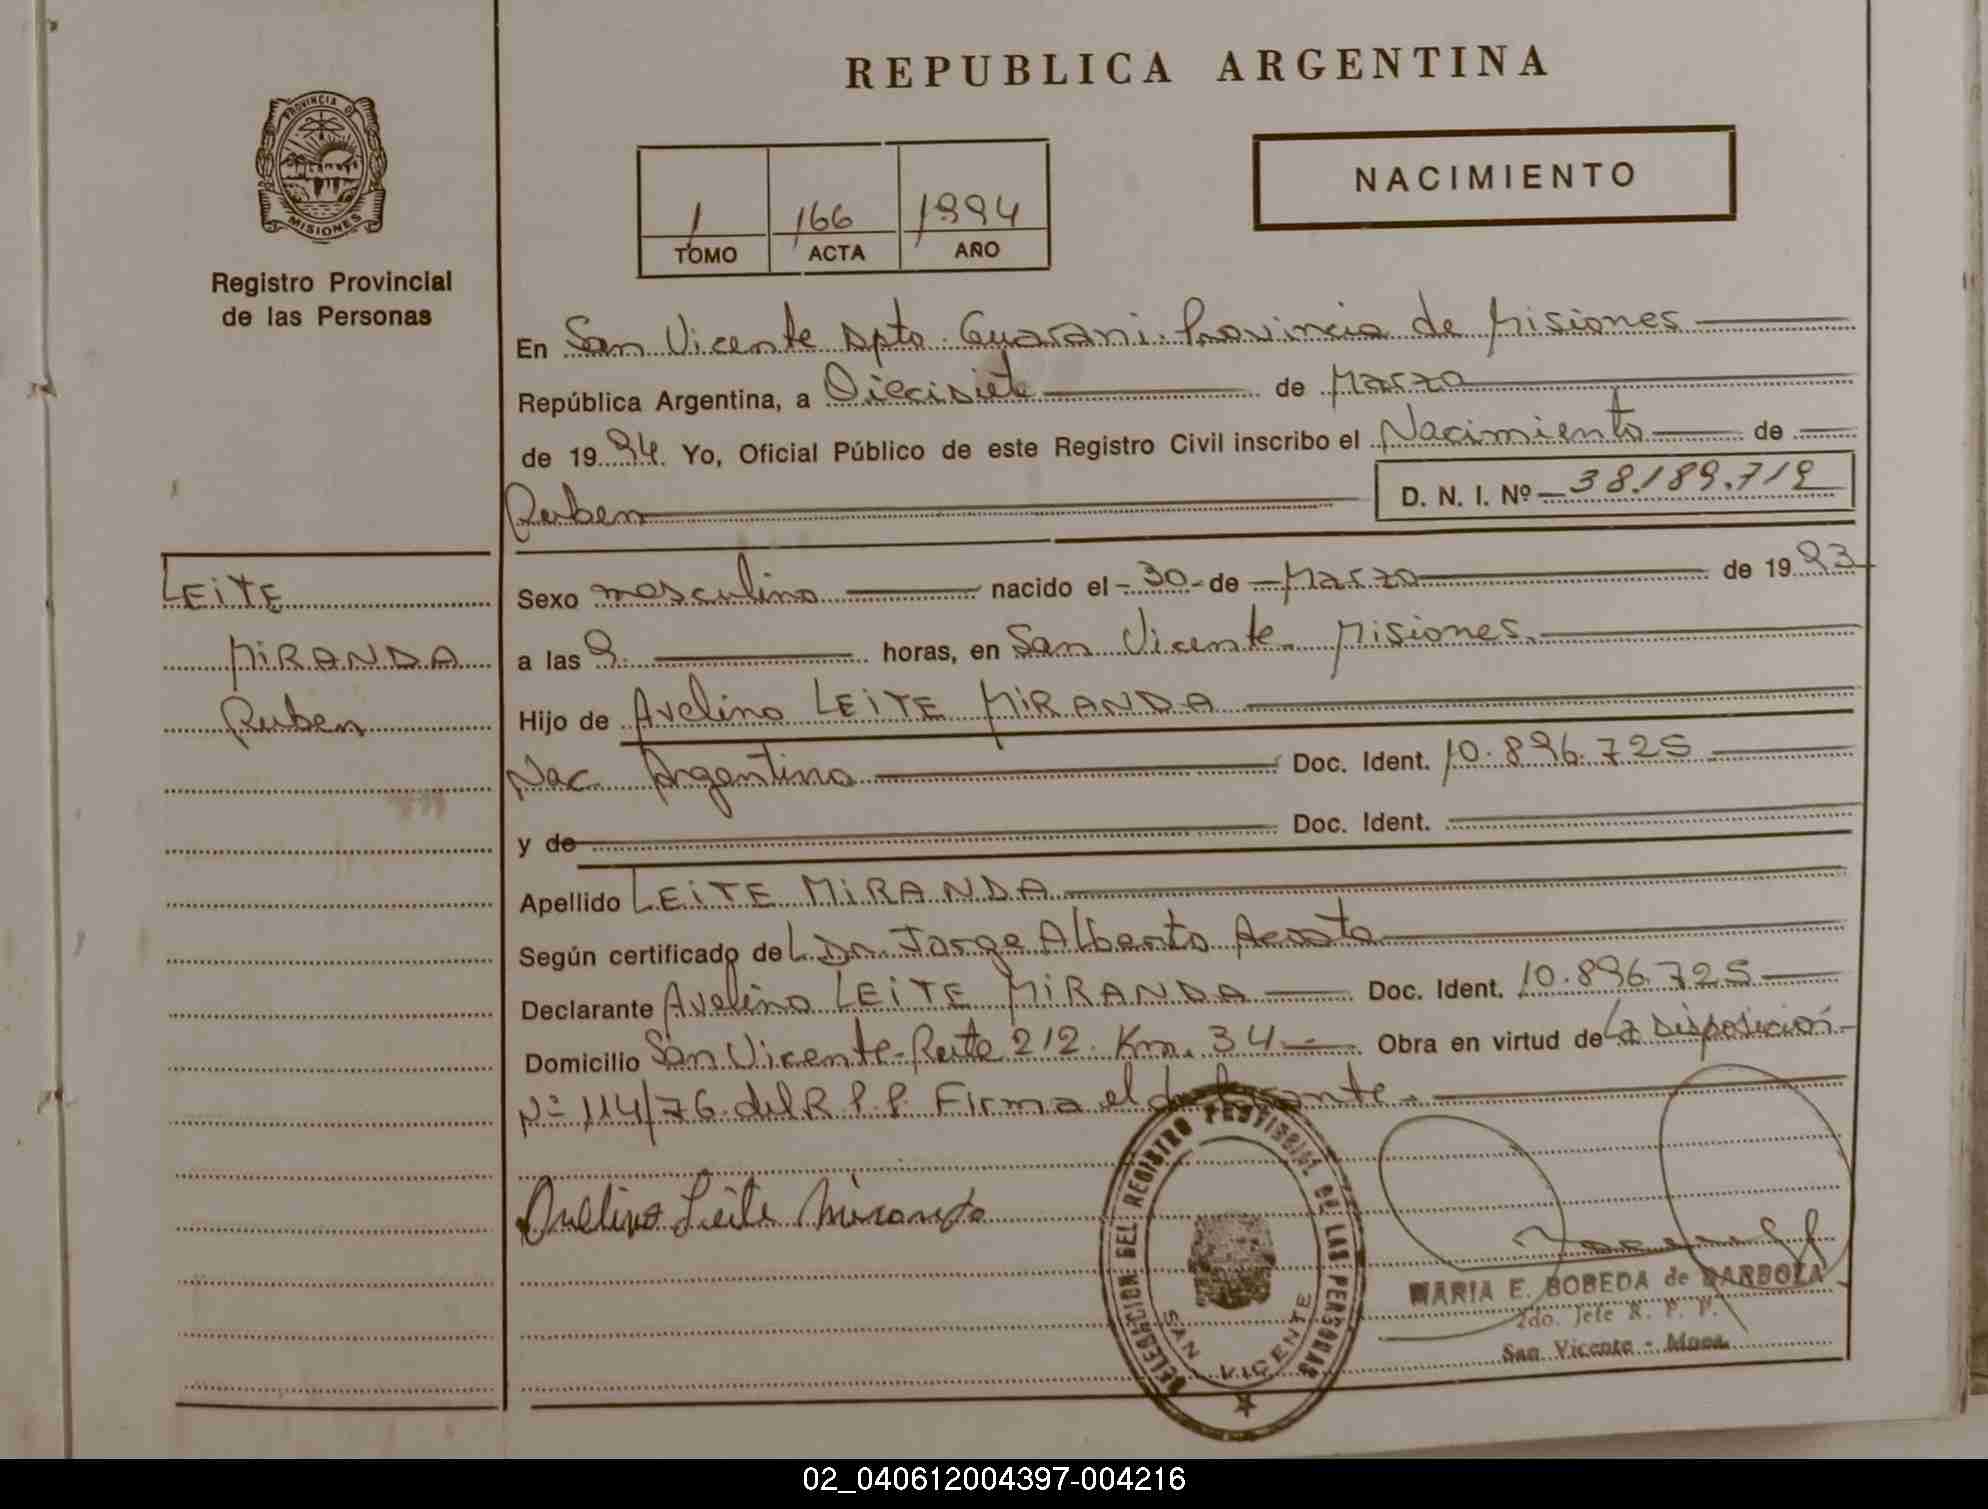 REPUBLICA ARGENTINA
PROVINCIA DE
MISIONES
Registro Provincial
de las Personas
NACIMIENTO
1 166 1994
TOMO ACTA AÑO
En San Vicente Dpto. Guarani. Provincia de Misiones
República Argentina, a Diecisiete de Marzo
de 1994. Yo, Oficial Público de este Registro Civil inscribo el Nacimiento de
Ruben D. N. I. Nº 38.189.719
LEITE
MIRANDA
Ruben
Sexo masculino nacido el -30- de Marzo de 1993
a las 9 horas, en San Vicente. Misiones.
Hijo de Avelino LEITE MIRANDA
Nac. Argentina Doc. Ident. 10.896.725
y de Doc. Ident.
Apellido LEITE MIRANDA
Según certificado de L. Dr. Jorge Alberto Acosta
Declarante Avelino LEITE MIRANDA Doc. Ident. 10.896.725
Domicilio San Vicente-Ruta 212. Km. 34 Obra en virtud de La Disposición
Nº 114/76 del R.P.P. Firma el declarante.
Avelino Leite Miranda
DELEGACION DEL REGISTRO PROVINCIAL DE LAS PERSONAS
SAN VICENTE
MARIA E. BOBEDA de BARBOZA
2do. Jefe R. P. P.
San Vicente - Mnes.
02_040612004397-004216